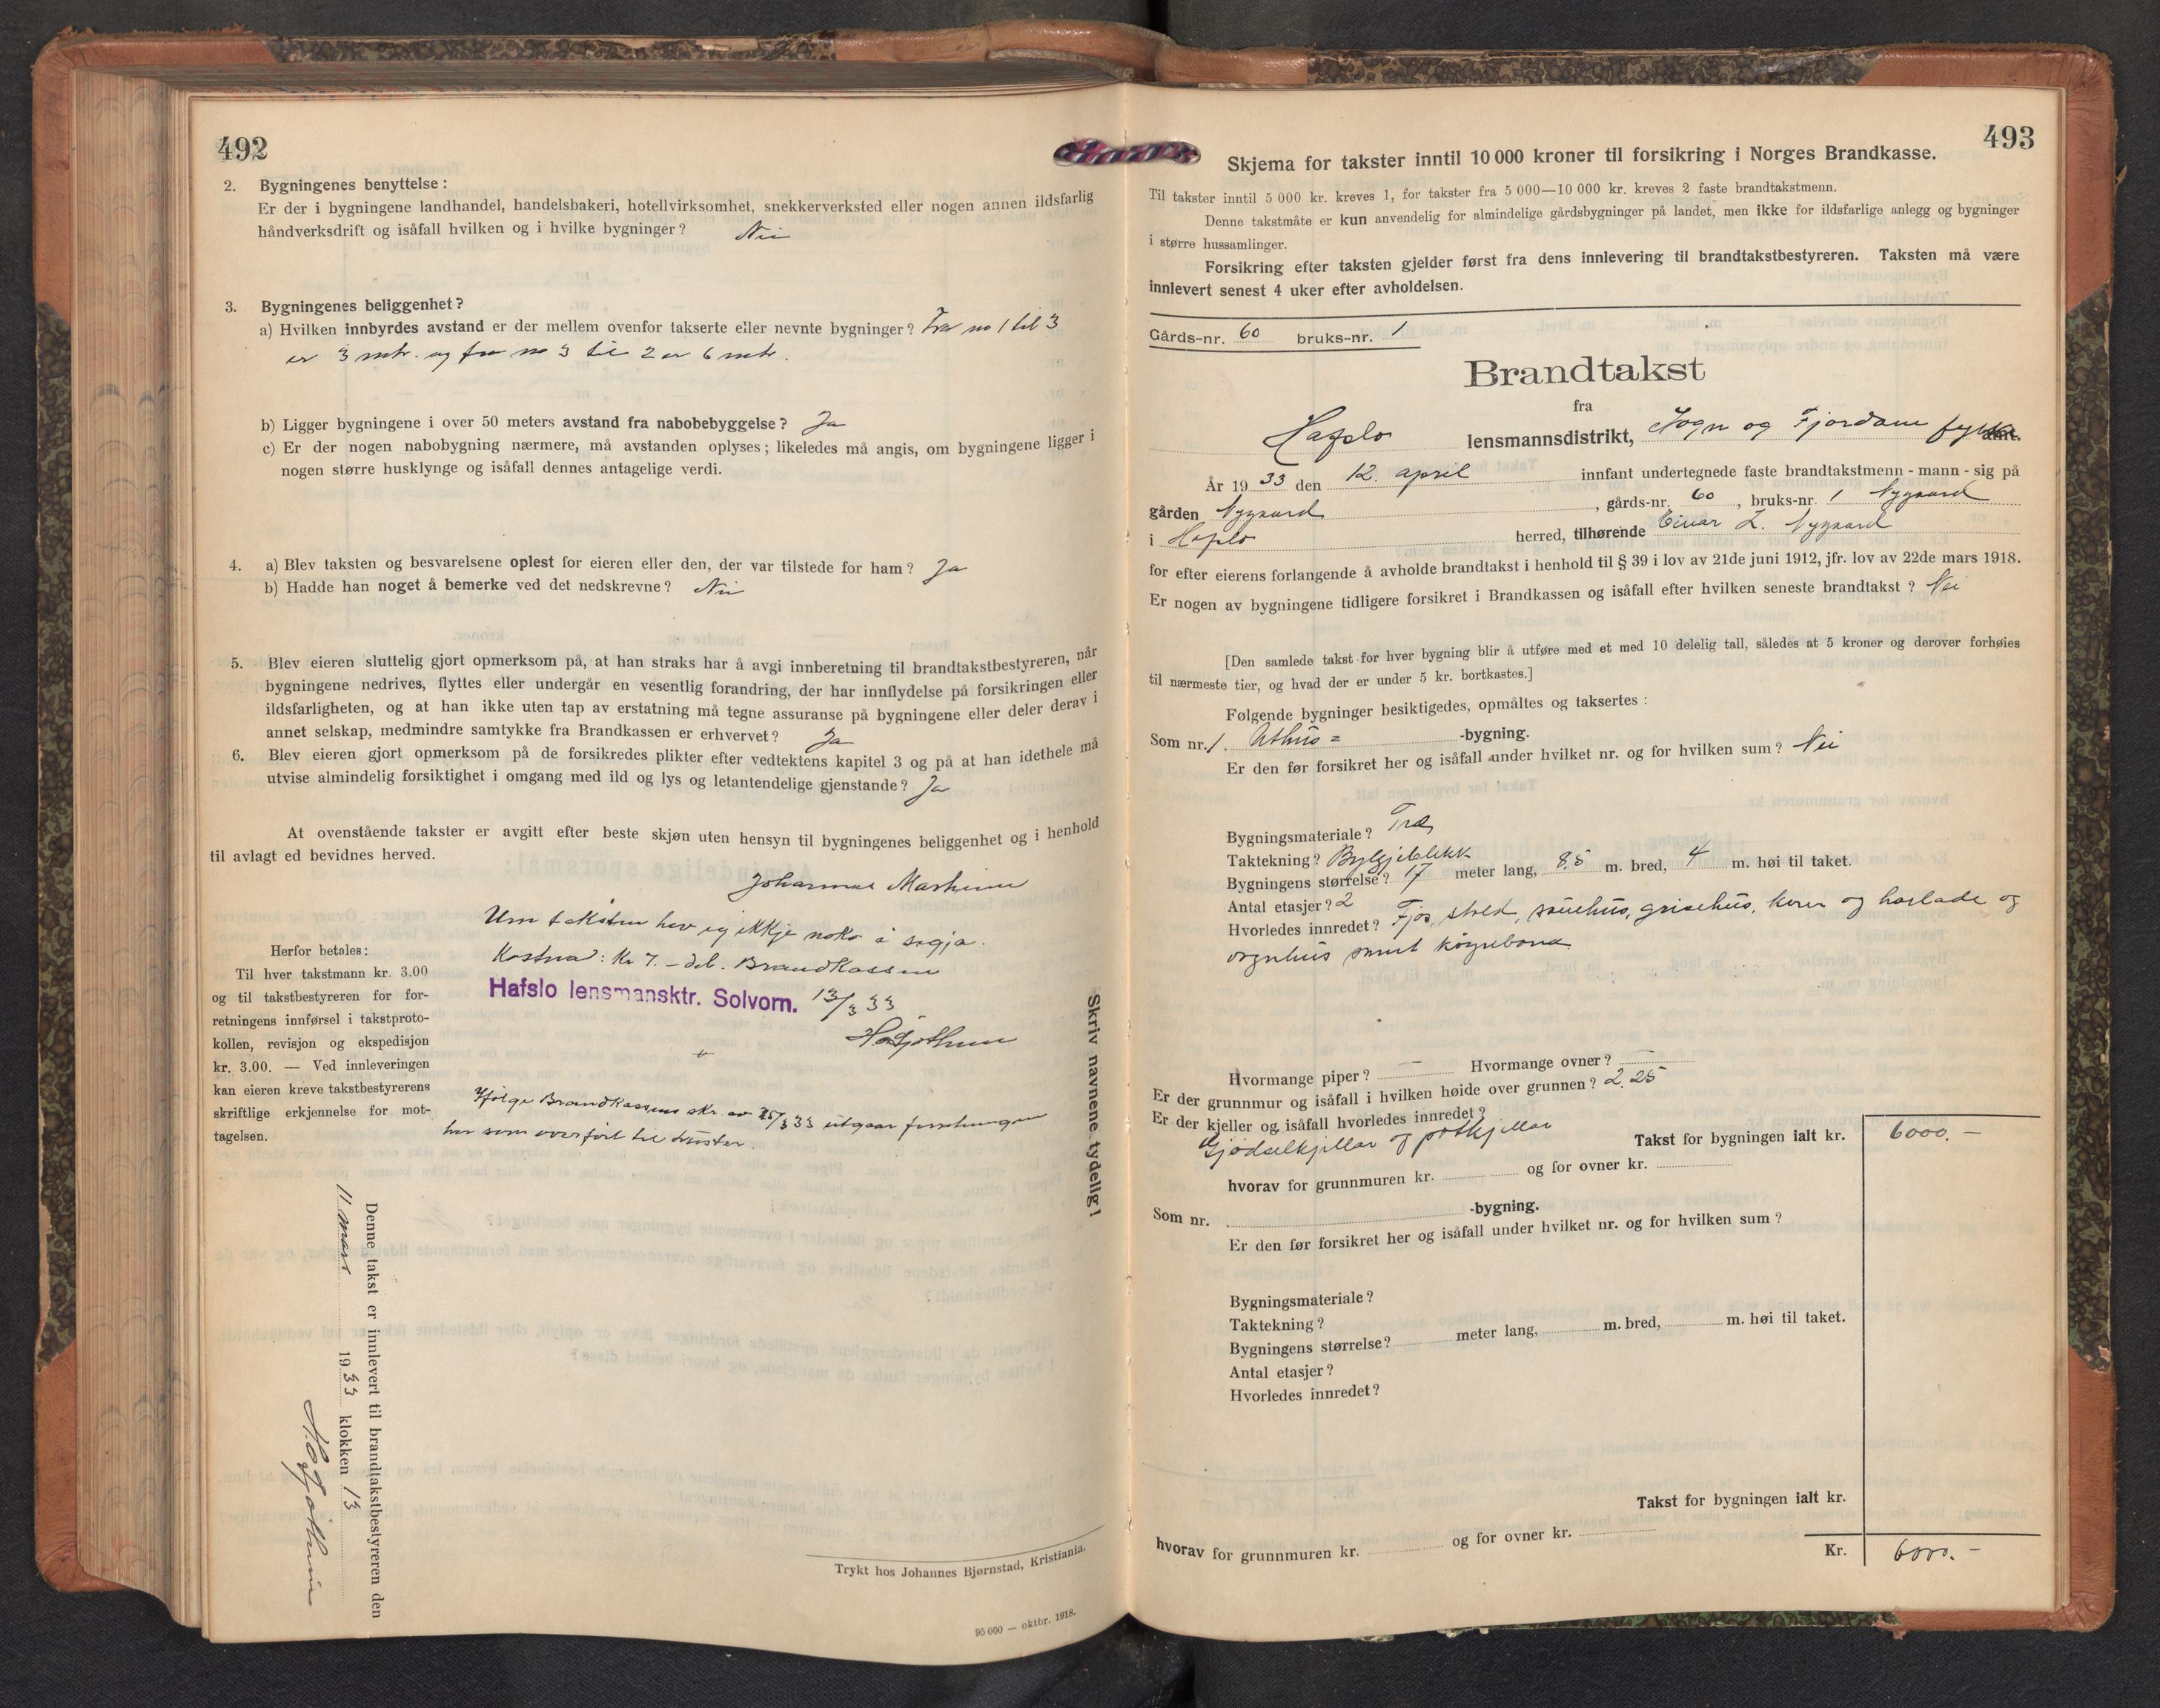 492
2. Bygningenes benyttelse:
Er der i bygningene landhandel, handelsbakeri, hotellvirksomhet, snekkerverksted eller nogen annen ildsfarlig
håndverksdrift og isåfall hvilken og i hvilke bygninger? Nei
3. Bygningenes beliggenhet?
a) Hvilken innbyrdes avstand er der mellem ovenfor takserte eller nevnte bygninger? Fra no 1 til 3
er 3 mtr. og fra no 3 til 2 er 6 mtr.
b) Ligger bygningene i over 50 meters avstand fra nabobebyggelse? Ja
c) Er der nogen nabobygning nærmere, må avstanden oplyses; likeledes må angis, om bygningene ligger i
nogen større husklynge og isåfall dennes antagelige verdi.
4. a) Blev taksten og besvarelsene oplest for eieren eller den, der var tilstede for ham? Ja
b) Hadde han noget å bemerke ved det nedskrevne? Nei
5. Blev eieren sluttelig gjort opmerksom på, at han straks har å avgi innberetning til brandtakstbestyreren, når
bygningene nedrives, flyttes eller undergår en vesentlig forandring, der har innflydelse på forsikringen eller
ildsfarligheten, og at han ikke uten tap av erstatning må tegne assuranse på bygningene eller deler derav i
annet selskap, medmindre samtykke fra Brandkassen er erhvervet? Ja
6. Blev eieren gjort opmerksom på de forsikredes plikter efter vedtektens kapitel 3 og på at han idethele må
utvise almindelig forsiktighet i omgang med ild og lys og letantendelige gjenstande? Ja
At ovenstående takster er avgitt efter beste skjøn uten hensyn til bygningenes beliggenhet og i henhold
til avlagt ed bevidnes herved.
Johannes
Um taksten hev eg ikkje noko å segja.
Kostnad: Kr 7.– deb. Brandkassen
Hafslo lensmansktr. Solvorn. 13/3 33
Herfor betales:
Til hver takstmann kr. 3.00
og til takstbestyreren for for-
retningens innførsel i takstproto-
kollen, revisjon og ekspedisjon
kr. 3.00. — Ved innleveringen
kan eieren kreve takstbestyrerens
skriftlige erkjennelse for mot-
tagelsen.
Ifølge Brandkassens skr. av 25/3 33 utgaar
her som overført til
Denne takst er innlevert til brandtakstbestyreren den
11 mars 1933 klokken 13
Skriv navnene tydelig!
Trykt hos Johannes Bjørnstad, Kristiania.
95 000 — oktbr. 1918.
493
Skjema for takster inntil 10 000 kroner til forsikring i Norges Brandkasse.
Til takster inntil 5 000 kr. kreves 1, for takster fra 5 000—10 000 kr. kreves 2 faste brandtakstmenn.
Denne takstmåte er kun anvendelig for almindelige gårdsbygninger på landet, men ikke for ildsfarlige anlegg og bygninger
i større hussamlinger.
Forsikring efter taksten gjelder først fra dens innlevering til brandtakstbestyreren. Taksten må være
innlevert senest 4 uker efter avholdelsen.
Gårds-nr. 60 bruks-nr. 1
Brandtakst
fra
Hafslo lensmannsdistrikt, Sogn og Fjordane fylke amt.
År 1933 den 12. april innfant undertegnede faste brandtakstmenn - mann - sig på
gården Nygaard, gårds-nr. 60, bruks-nr. 1 Nygaard
i Hafslo herred, tilhørende Einar L. Nygaard
for efter eierens forlangende å avholde brandtakst i henhold til § 39 i lov av 21de juni 1912, jfr. lov av 22de mars 1918.
Er nogen av bygningene tidligere forsikret i Brandkassen og isåfall efter hvilken seneste brandtakst? Nei
[Den samlede takst for hver bygning blir å utføre med et med 10 delelig tall, således at 5 kroner og derover forhøies
til nærmeste tier, og hvad der er under 5 kr. bortkastes.]
Følgende bygninger besiktigedes, opmåltes og taksertes:
Som nr. 1. Uthus= -bygning.
Er den før forsikret her og isåfall under hvilket nr. og for hvilken sum? Nei
Bygningsmateriale? Træ
Taktekning? Bylgjeblekk
Bygningens størrelse? 17 meter lang, 8.5 m. bred, 4 m. høi til taket.
Antal etasjer? 2
Hvorledes innredet? Fjøs, stald, sauehus, grisehus, korn og høilade og
vognhus samt køyrebona
Hvormange piper? — Hvormange ovner? —
Er der grunnmur og isåfall i hvilken høide over grunnen? 2.25
Er der kjeller og isåfall hvorledes innredet?
Gjødselkjellar og potkjellar
Takst for bygningen ialt kr. 6000.–
hvorav for grunnmuren kr. og for ovner kr.
Som nr. -bygning.
Er den før forsikret her og isåfall under hvilket nr. og for hvilken sum?
Bygningsmateriale?
Taktekning?
Bygningens størrelse? meter lang, m. bred, m. høi til taket.
Antal etasjer?
Hvorledes innredet?
Takst for bygningen ialt kr.
hvorav for grunnmuren kr. og for ovner kr.
Kr. 6000.–